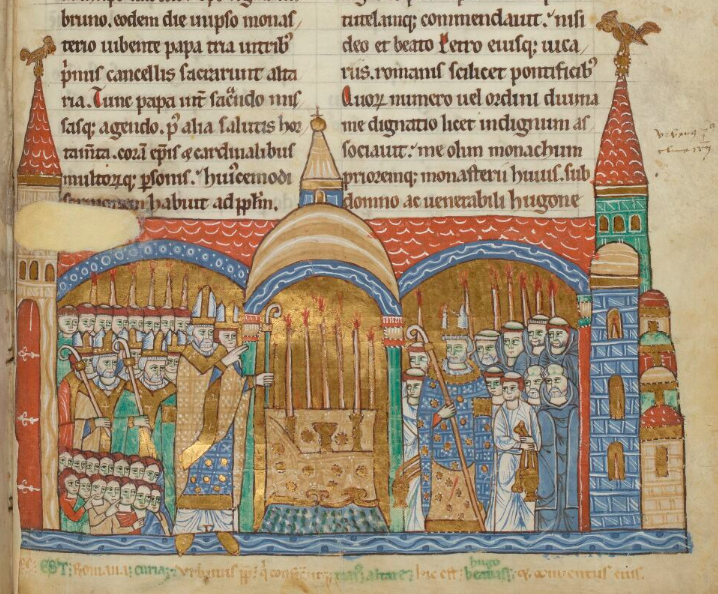 bruno. eodem die in ipso monas/
terio iubente papa tria in trib'
p̄mis cancellis sacrarunt alta
ria. Tunc papa int' sac̄ndo mis
sasq; agendo. p' alia salutis hor
tam̄ta. corā ep̄is & cardinalibus
multorq; p̄sonis. hui'cemodi
sermonem habuit ad pp̄lm.
tutelamq; commendauit. nisi
deo et beato Petro eiusq; uica/
riis. romanis scilicet pontificib'
Quoꝝ numero uel ordini diuina
me dignatio licet indignum as
sociauit. me olim monachum
prioremq; monasterii huius. sub
domno ac uenerabili hugone
hugo
EST: Romana curia hic est abbas conuentus eius.